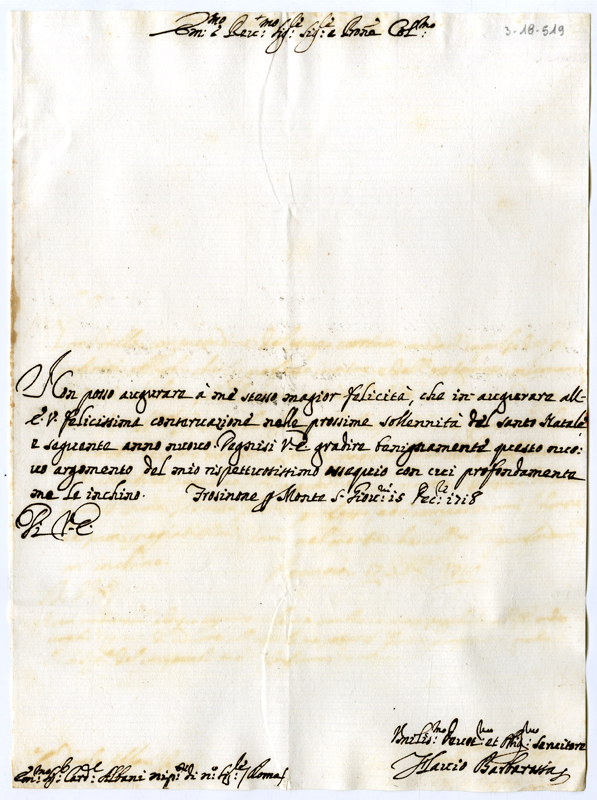 Em:mo e Rev:mo Sig:re Sig:re e Prōne Col:mo
3-18-519
Non posso augurare à me stesso magior felicità, che in augurare all-
E.V. felicissima conservazione nelle prossime sollennità del Santo Natale
e seguente anno nuovo. Degnisi V.E. gradire benignamente questo nuo:
vo argomento del mio rispettuosissimo ossequio con cui profondamente
me le inchino. Frosinone Monte S. Giov:ni 15 Dec:re 1718
Di V.E.
Umilis:mo Devot:mo et Oblig:mo Servitore
Flavio Barbarossa
Em:mo Sig:r Card:le Albani nip:te di n:ro Sig:re (Roma)